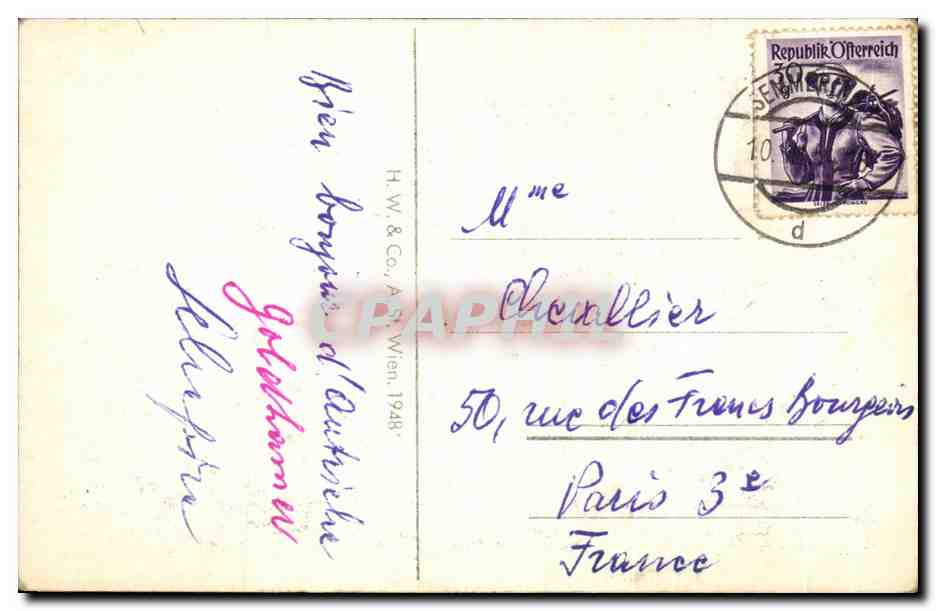 Bien bonjour d'Autriche
goldhamer
H. W. & Co., A. St. Wien. 1948
Republik Österreich
30 g
SEMMERING
10.
d
Mme
Chevallier
50, rue des Francs Bourgeois
Paris 3e
France
CPAPHIL